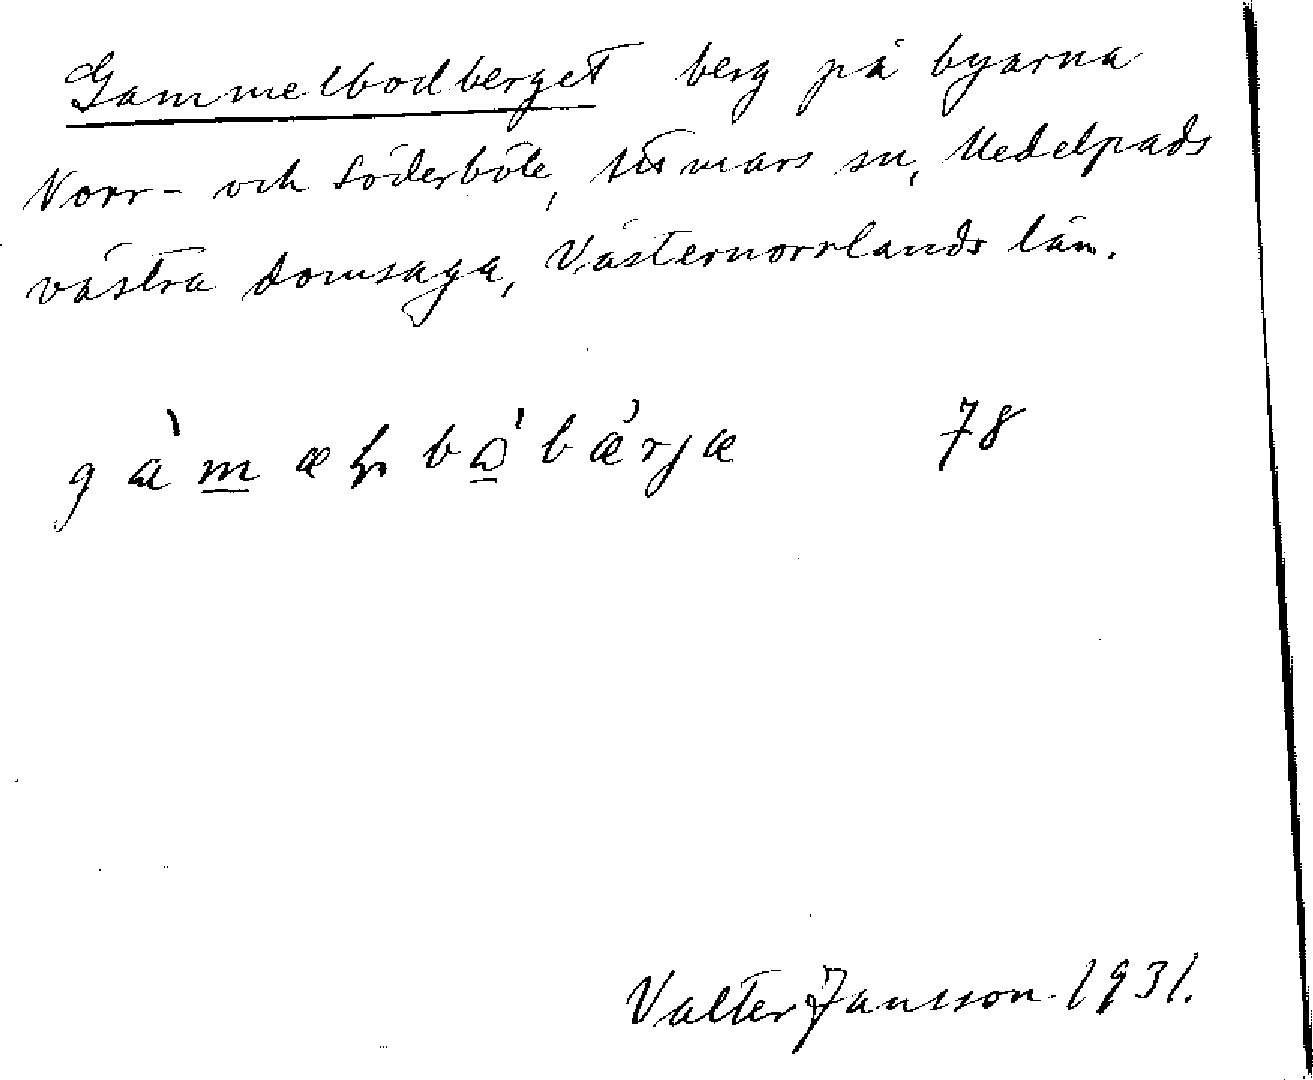 Gammelbodberget berg på byarna
Norr- och Söderböle, Attmars sn, Medelpads
västra domsaga, Västernorrlands län.
78
Valter Jansson 1931.